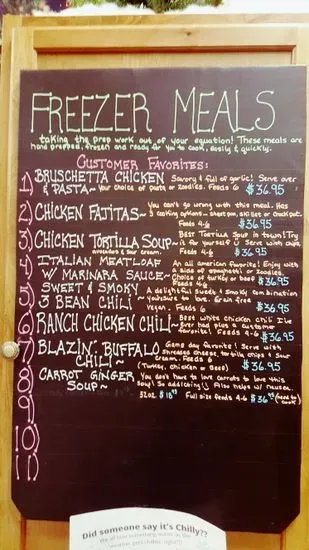 FREEZER MEALS
taking the prep work out of your equation! These meals are
hand prepped, frozen and ready for you to cook, easily & quickly.
CUSTOMER FAVORITES:
1) BRUSCHETTA CHICKEN Savory & full of garlic! Serve over
& PASTA~ Your choice of pasta or zoodles. Feeds 6 $36.95
2) CHICKEN FAJITAS~ You can't go wrong with this meal. Has
3 cooking options - sheet pan, skillet or crock pot.
Feeds 4-6 $36.95
3) CHICKEN TORTILLA SOUP~ Best Tortilla Soup in town! Try
it for yourself Serve with chips,
avocados & sour cream. Feeds 4-6 $36.95
4) ITALIAN MEATLOAF An all american favorite! Enjoy with
W/ MARINARA SAUCE~ a side of spaghetti or zoodles.
Choice of turkey or beef
Feeds 4-6 $36.95
5) SWEET & SMOKY A delightful sweet & smoky combination
3 BEAN CHILI ~ you're sure to love. Grain free
Vegan. Feeds 6 $36.95
6) RANCH CHICKEN CHILI~ Best white chicken chili I've
ever had plus a customer
favorite! Feeds 6 $36.95
7) BLAZIN' BUFFALO Game day favorite! Serve with
CHILI ~ shredded cheese, tortilla chips & sour
cream. Feeds 6
(Turkey, chicken or Beef) $36.95
8) CARROT GINGER You don't have to love carrots to love this
SOUP~ soup! So addicting! Also helps w/ nausea.
32oz $18.95 Full size feeds 4-6 $36.95
9)
10)
11)
Did someone say it's Chilly??